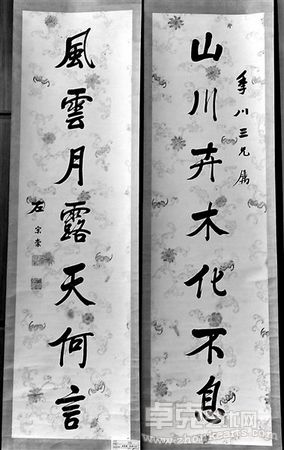 山川卉木化不息
季川三兄属
風雲月露天何言
石宗素
卓克艺术网